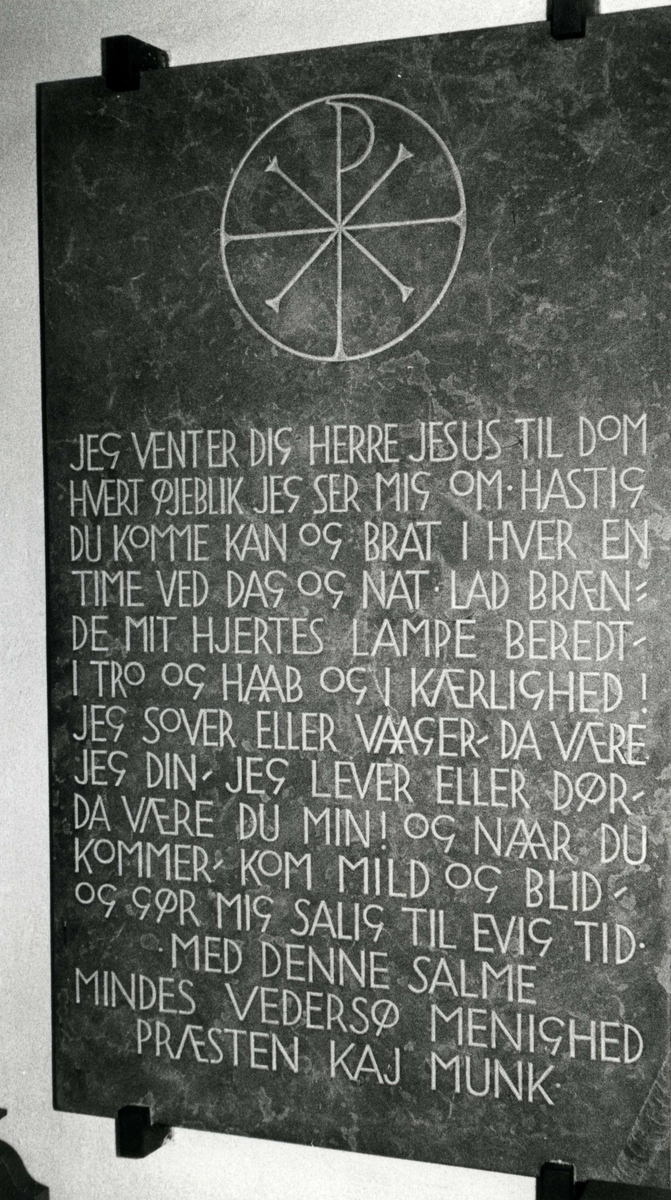 JEG VENTER DIG HERRE JESUS TIL DOM
HVERT ØJEBLIK JEG SER MIG OM · HASTIG
DU KOMME KAN OG BRAT I HVER EN
TIME VED DAG OG NAT · LAD BRÆN=
DE MIT HJERTES LAMPE BEREDT-
I TRO OG HAAB OG I KÆRLIGHED !
JEG SOVER ELLER VAAGER- DA VÆRE
JEG DIN- JEG LEVER ELLER DØR-
DA VÆRE DU MIN! OG NAAR DU
KOMMER- KOM MILD OG BLID-
OG GØR MIG SALIG TIL EVIG TID ·
· MED DENNE SALME
MINDES VEDERSØ MENIGHED
PRÆSTEN KAJ MUNK ·